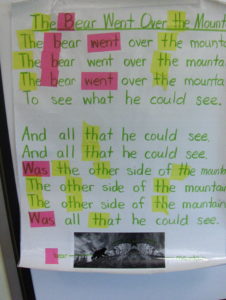 The Bear Went Over the Mount
The bear went over the mounta
The bear went over the mounta
The bear went over the mounta
To see what he could see.
And all that he could see.
And all that he could see.
Was the other side of the mounta
The other side of the mountain
The other side of the mountain
Was all that he could see.
bear